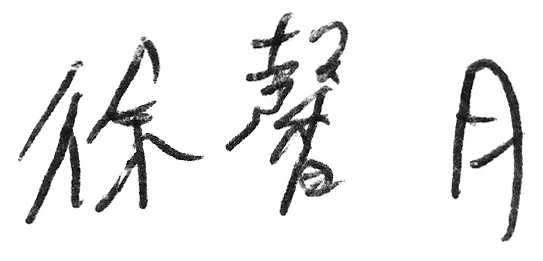 徐馨月